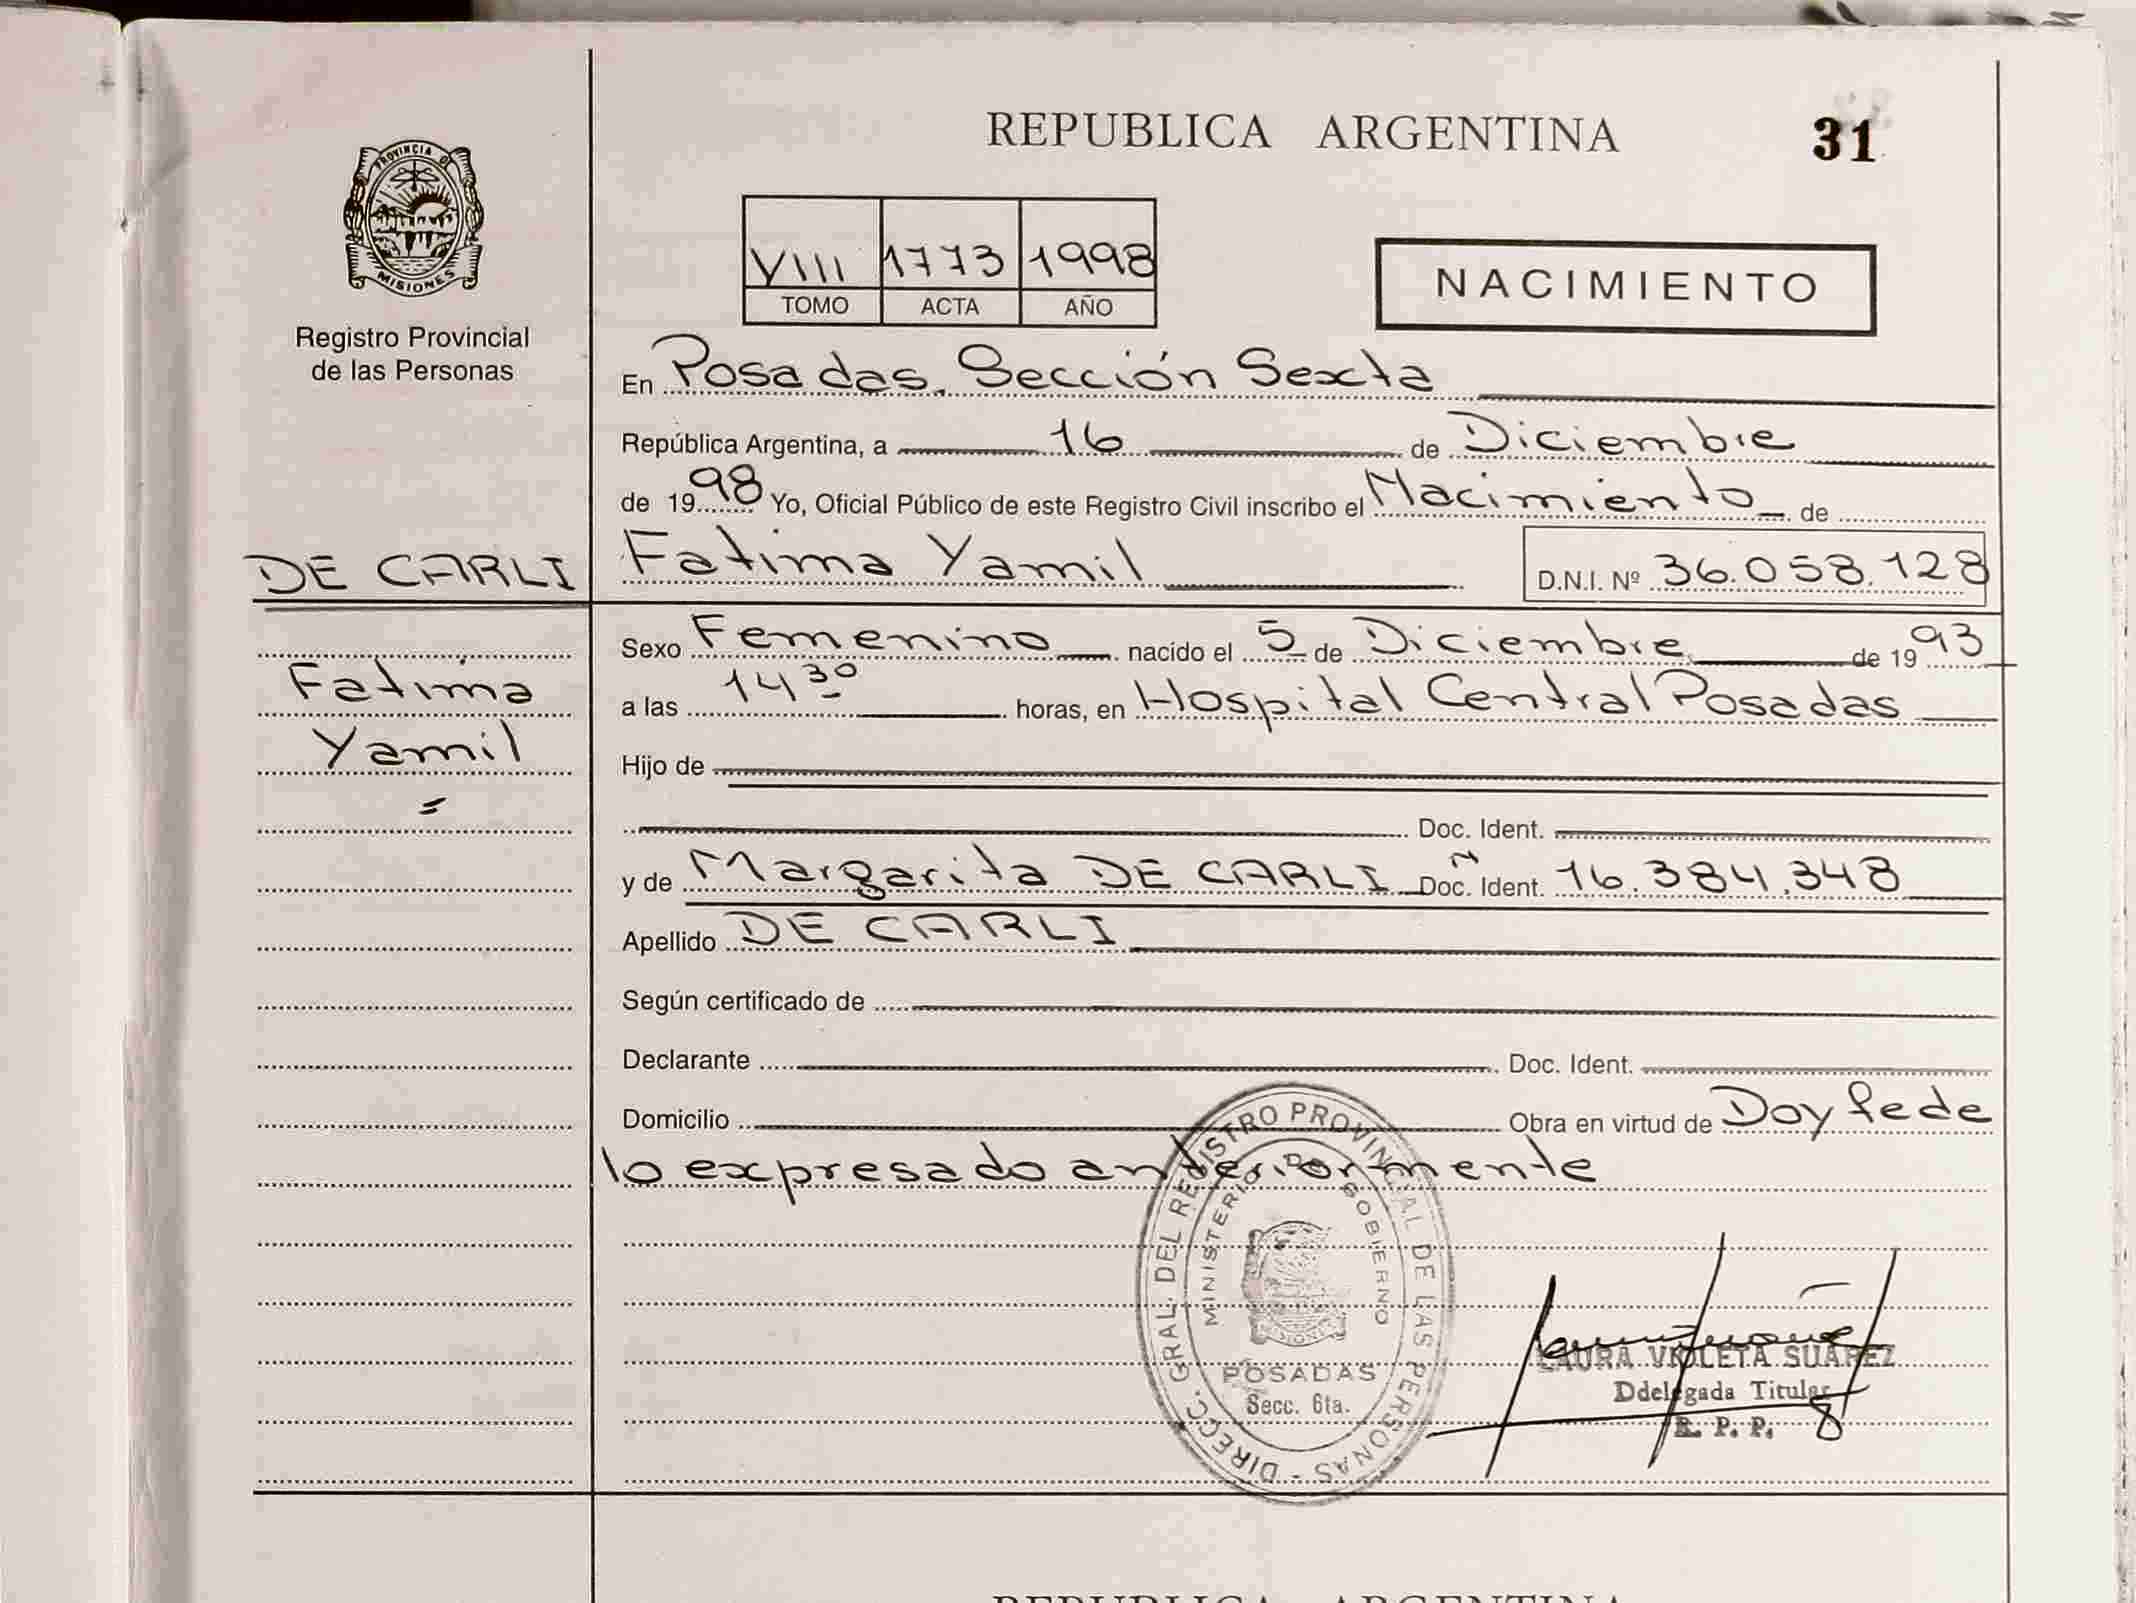 REPUBLICA ARGENTINA
31
PROVINCIA DE
MISIONES
Registro Provincial
de las Personas
VIII 1773 1998
TOMO ACTA AÑO
NACIMIENTO
En Posadas. Sección Sexta
República Argentina, a 16 de Diciembre
de 1998 Yo, Oficial Público de este Registro Civil inscribo el Nacimiento de
DE CARLI
Fatima Yamil
D.N.I. Nº 36.058.128
Fatima
Yamil
Sexo Femenino nacido el 5 de Diciembre de 1993
a las 14 30 horas, en Hospital Central Posadas
Hijo de
Doc. Ident.
y de Margarita DE CARLI Doc. Ident. N 16.384.348
Apellido DE CARLI
Según certificado de
Declarante Doc. Ident.
Domicilio Obra en virtud de Doy fe de
lo expresado anteriormente
DIRECC. GRAL. DEL REGISTRO PROVINCIAL DE LAS PERSONAS -
MINISTERIO DE GOBIERNO
MISIONES
POSADAS
Secc. 6ta.
LAURA VIOLETA SUAREZ
Ddelegada Titular
R. P. P.
REPUBLICA ARGENTINA